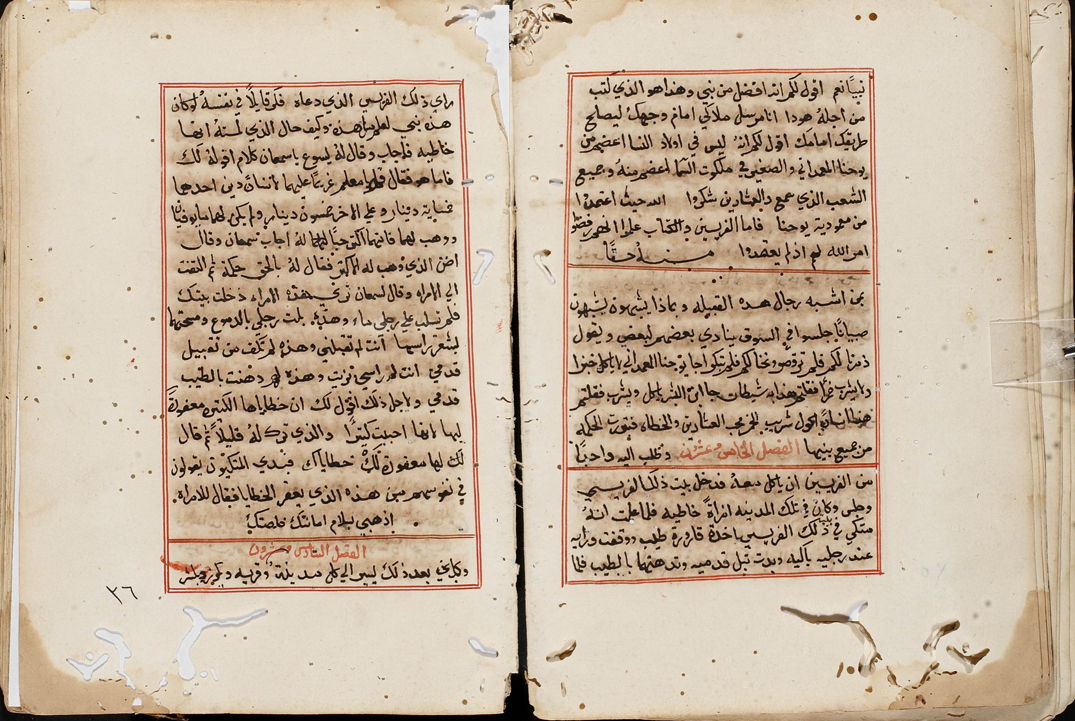 نبيًا نعم اقول لكم انه افضل من نبي وهذا هو الذي كتب
من اجله هودا انا مرسل ملاكي امام وجهك ليصلح
طريقك امامك اقول لكم انه ليس في اولاد النسا اعضم من
يوحنا المعمداني والصغير في ملكوت السما اعضم منه وجميع
الشعب الذي سمع والعشارين شكروا الله حيث اعتمدوا
من معمودية يوحنا فاما الفريسين والكتاب علموا انهم رفضوا
امر الله لهم اذ لم يعتمدوا منه حقًا
بمن اشبه رجال هذه القبيله و بماذا يشبهون يشبهون
صبيانًا جلسوا في السوق ينادي بعضهم لبعض ويقول
زمرنا لكم فلم ترقصو ونحنا لكم فلم تبكوا جا يوحنا المعمداني لا ياكل خبزا
ولا يشرب خمرًا فقلتم هذا به شيطان جا ابن البشر ياكل ويشرب فقلتم
هذا انسان اكول شريب للخمر محب العشارين والخطاه فتبررت الحكمه
من جميع بنيها الفصل الخامس وعشرين وطلب اليه واحدًا
من الفريسين ان ياكل معه فدخل بيت ذلك الفريسي
وجلس وكان في تلك المدينه امراةً خاطيه فلما علمت انهُ
متكي في بيت ذلك الفريسي اخذة قارورة طيب ووقفت ورايه
عند رجليه باكيه وبدت تبل قدميه وتدهنهما بالطيب فلما
راى ذلك الفريسي الذي دعاه فكر قايلًا في نفسه لو كان
هذا نبي لعلم من هذه وكيف حال الذي لمسته انها
خاطيه فاجاب وقال له يسوع يا سمعان كلام اقوله لك
فاما هو فقال قل يا معلم غريمًا عليهما لانسان دين احدهما
خمسماية دينار وعلى الاخر خمسون دينار ولم يكن لهما ما يوفيا
ووهب لهما فايهما اكثر حبًا له اجاب سمعان وقال
اضن الذي وهب له الاكثر فقال له بالحق حكمة ثم التفت
الي الامراه وقال لسمعان ترى هذه الامراه دخلت بيتك
فلم تسكب على رجلي ماء وهذه بلت رجلي بالدموع ومسحتهما
بشعر راسها انت لم تقبلني وهذه لم تكف من تقبيل
قدمي انت لم راسي بزيت وهذه دهنت بالطيب
قدمي ولاجل ذلك اقول لك ان خطاياها الكثيره مغفورة
ليها لانها احبت كثيرًا والذي ترك له قليلًا ثم قال
لها مغفورة لك خطاياك فبدي المتكيون يقولون
في نفوسهم من هذه الذي يغفر الخطايا فقال للامراة
اذهبي بسلام امانتك خلصتك
الفصل السادس وعشرون
وكان بعد ذلك يسير الى كل مدينة وقريه ويكرز ويبشر
٢٦